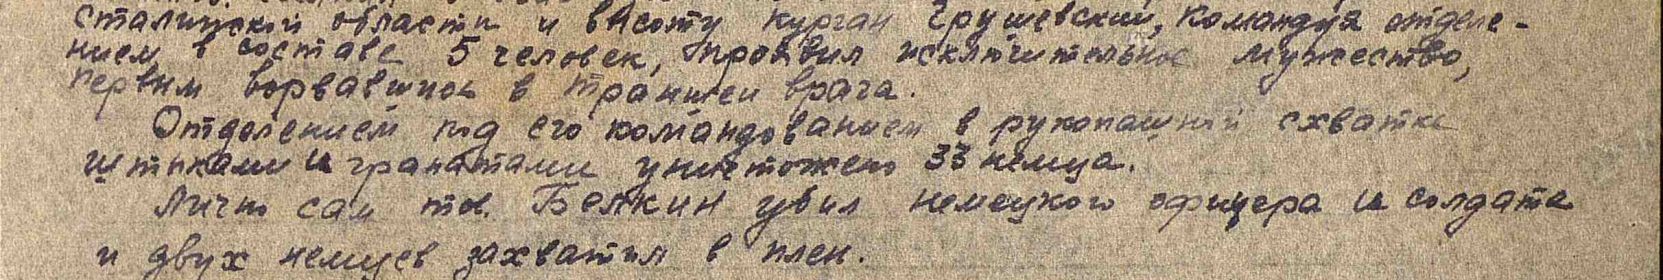 Сталинской области и высоту курган Грушевский, командуя отделе-
нием, в составе 5 человек, проявил исключительное мужество,
первым ворвавшись в траншеи врага.
Отделением под его командованием в рукопашной схватке
штыками и гранатами уничтожено 33 немца.
Лично сам тов. Белкин убил немецкого офицера и солдата
и двух немцев захватил в плен.